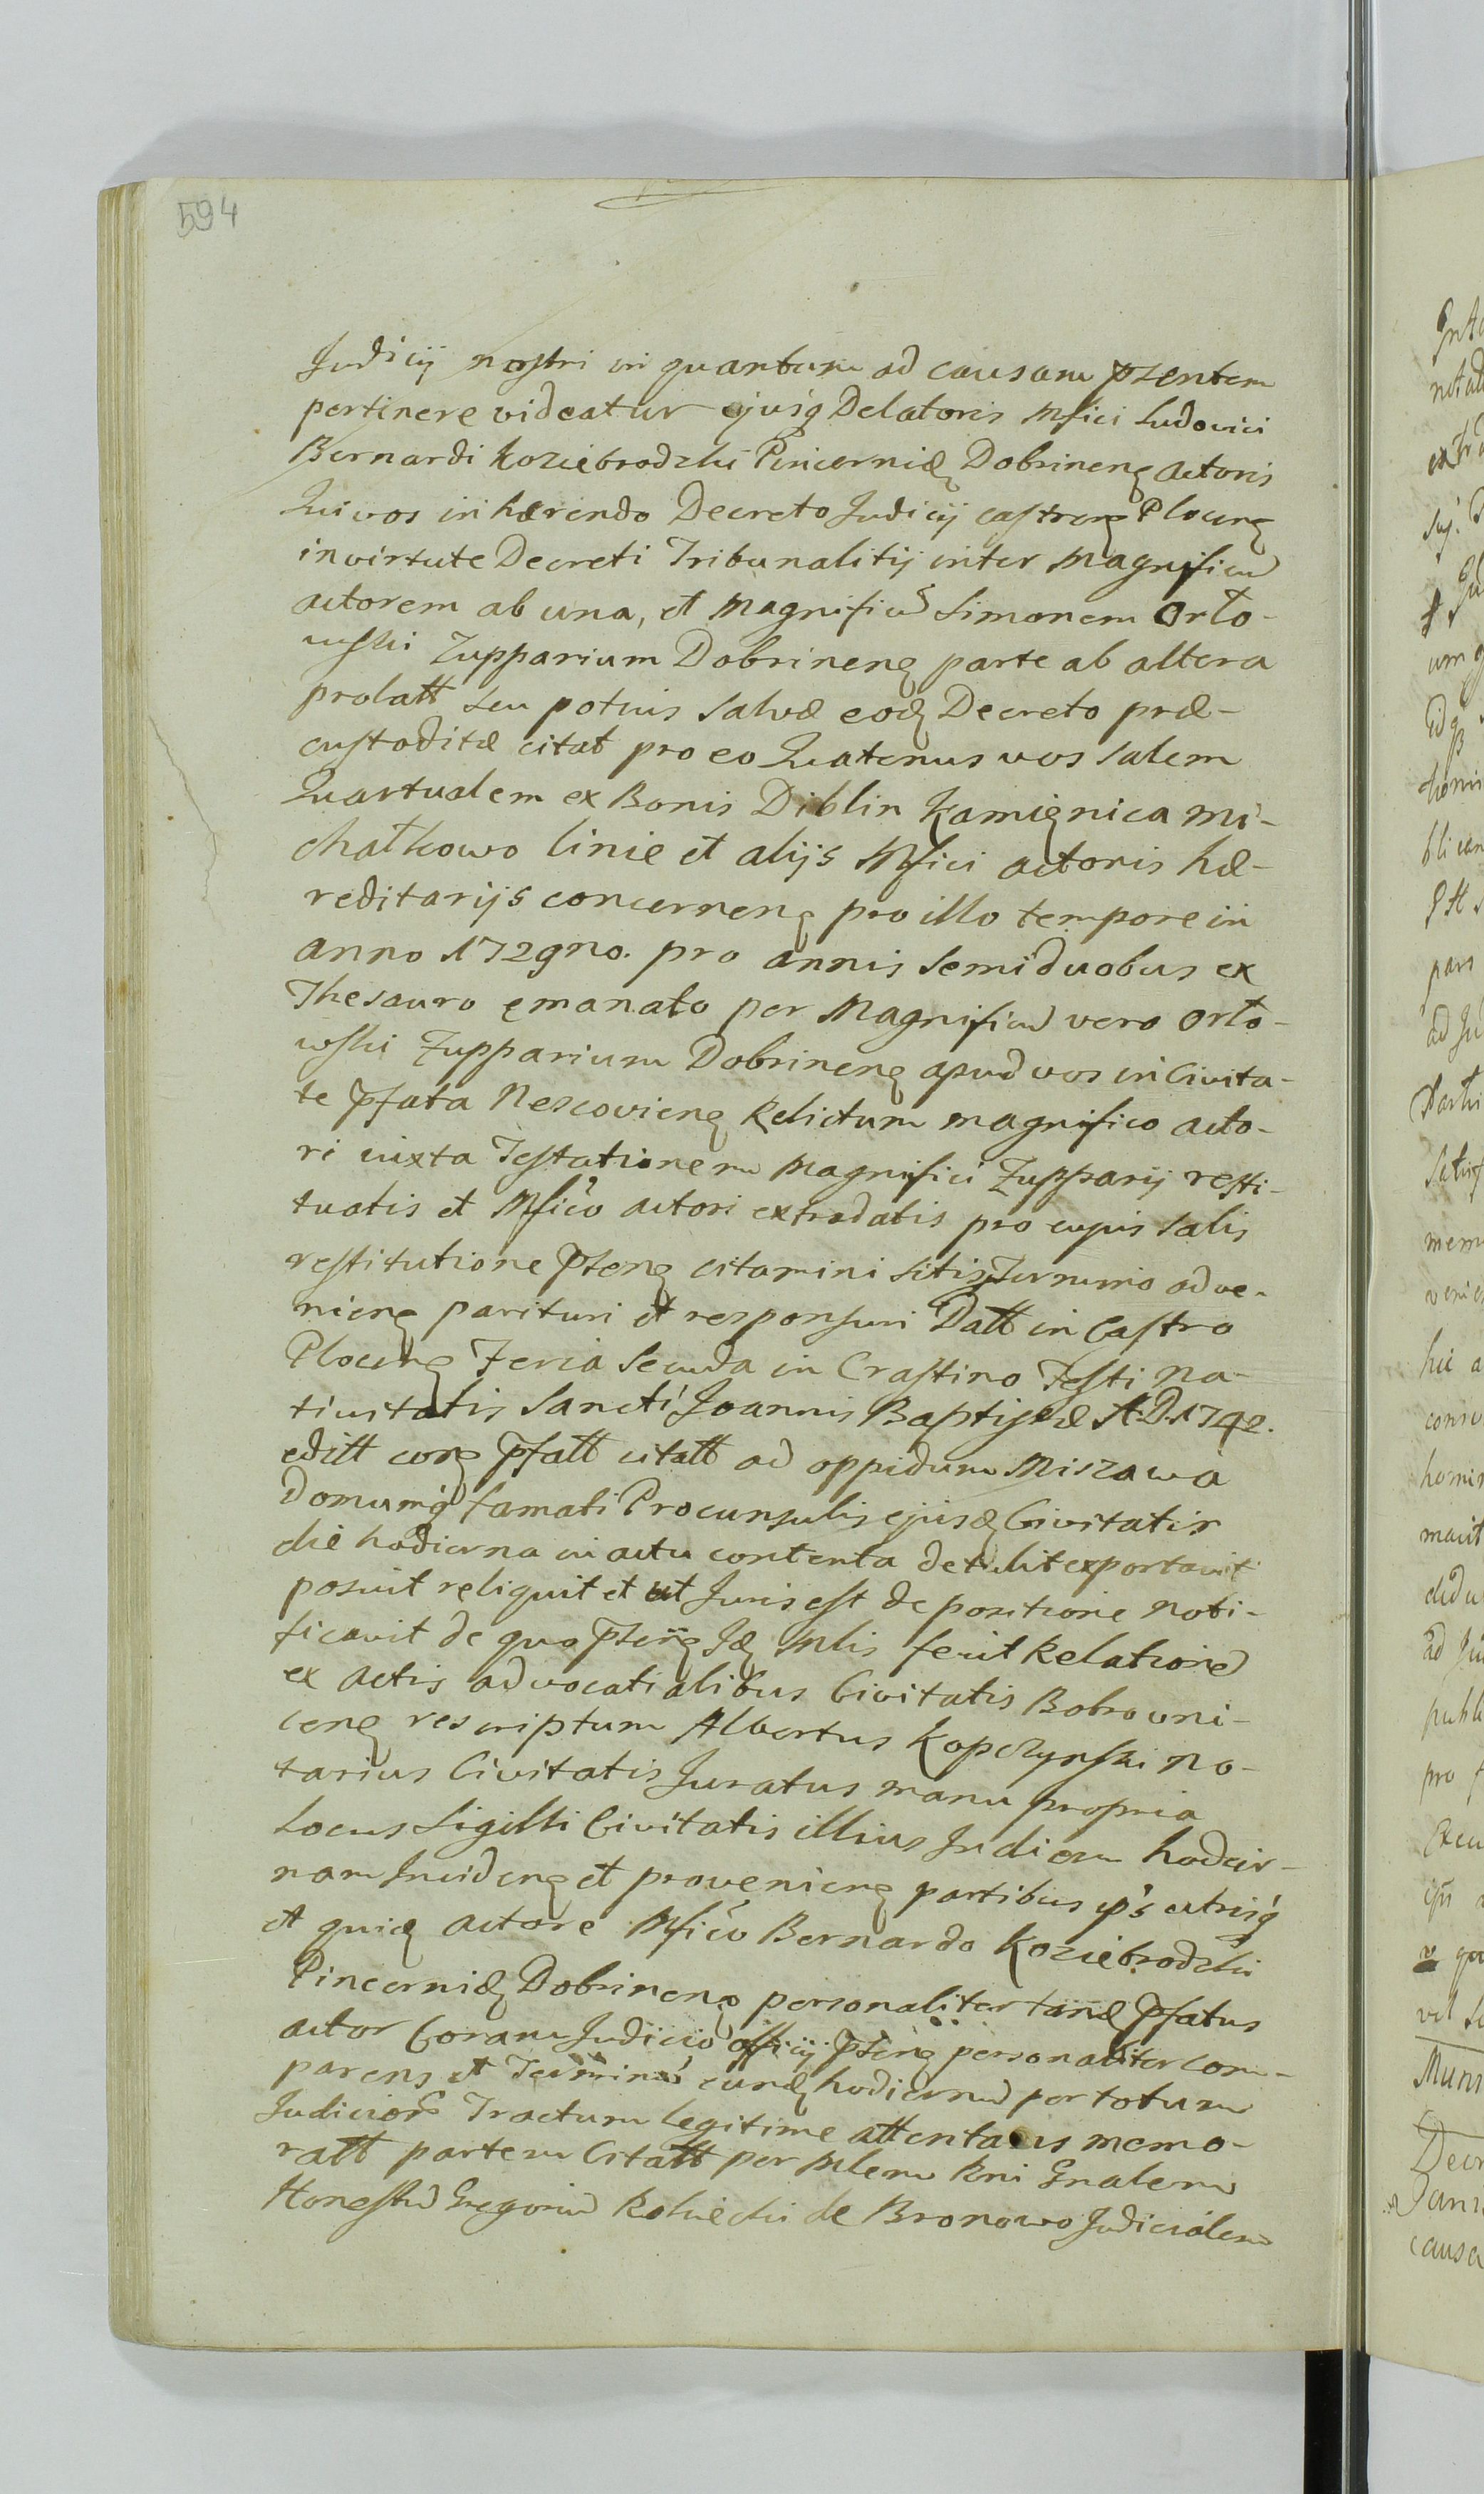 594
Judicij nostri in quantum ad causam pzentem
pertinere videatur ejusq Delatoris Mfici Ludovici
Bernardi Koziebrodzki Pincernidę Dobrinenę actoris
Qui vos inhærendo Decreto Judicij castrenę Plocenę
in virtute Decreti Tribunalitij inter Magnificū
actorem ab una, et Magnificū Simonem Orło-
wski Zupparium Dobrinenę parte ab altera
prolatt seu potius salvæ eodę Decreto præ-
custoditæ citat pro eo Quatenus vos salem
Quartualem ex Bonis Diblin Kamięnica Mi-
chałkowo linie et alijs Mfici actoris hæ-
reditarijs concernenę pro illo tempore in
anno 1729no. pro annis semiduobus ex
Thesauro emanato per Magnificū vero Orło-
wski Zupparium Dobrinenę apud vos in Civita-
te Pfata Nescovienę Relictum magnifico acto-
ri iuxta Testationem Magnifici Zupparij resti-
tuatis et Mfico actori extradatis pro cujus salis
restitutione Pzenę citamini sitisq Termino adve-
nienę parituri et responsuri Datt in Castro
Plocenę Feria Secunda in Crastino Festi Na-
tivitatis Sancti Joannis Baptistæ A.D. 1742.
editt corę Pfatt citatt ad oppidum Miszawa
Domumq famati Proconsulis ejusdę Civitatis
die hodierna in actu contenta detulit exportavit
posuit reliquit et ut Juris est de positione noti-
ficavit de quo Pzenę Idę Mlis fecit Relationē
ex actis advocatialibus Civitatis Bobrowni-
cenę rescriptum Albertus Kopczynski No-
tarius Civitatis Juratus manu propria
Locus Sigilli Civitatis illius In diem hodier-
nam Incidenę et provenienę partibus ip's utrisq
et quidę actore Mfico Bernardo Koziebrodzki
Pincernidę Dobrinenę personaliter tandę Pfatus
actor Coram Judicio officij Pzenę personaliter com-
parens et Terminū eundę hodiernū per totum
Judiciorę Tractum legitime attentans memo-
ratt partem Citatt per Mlem Rni Gnalem
Honestū Gregoriū Rokicki de Bronowo Judicialem